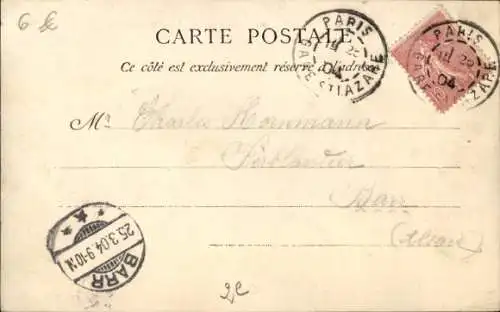 6 €
CARTE POSTALE
Ce côté est exclusivement réservé à l'adresse
PARIS
04
GARE ST LAZARE
PARIS
04
M. Charles
Barr
(Alsace)
25.3.04.9-10.N
BARR
2€